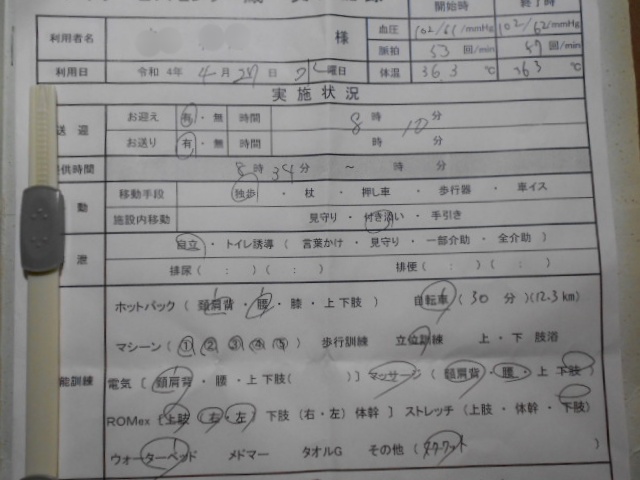 開始時
利用者名 様 血圧 102/61/mmHg 102/62/mmHg
脈拍 53 回/min 回/min
利用日 令和 4年 4月 日 曜日 体温 36.3 ℃ 36.3 ℃
実施状況
送迎 お迎え 有・無 時間 8時 10分
お送り 有・無 時間 時 分
供時間 8時 34分 ～ 時 分
動 移動手段 独歩 ・ 杖 ・ 押し車 ・ 歩行器 ・ 車イス
施設内移動 見守り・付き添い・手引き
泄 自立・トイレ誘導（言葉かけ・見守り・一部介助・全介助）
排尿（ : ）（ : ） 排便（ : ）（ : ）
ホットパック（頚肩背・腰・膝・上下肢） 自転車（30分）(12.3km)
マシーン（①②③④⑤） 歩行訓練 立位訓練 上・下 肢浴
能訓練 電気［頚肩背・腰・上下肢( )］ マッサージ（頚肩背・腰・上 下肢
ROMex［上肢（右・左）下肢（右・左）体幹］ストレッチ（上肢・体幹・下肢）
ウォーターベッド メドマー タオルG その他（ ）